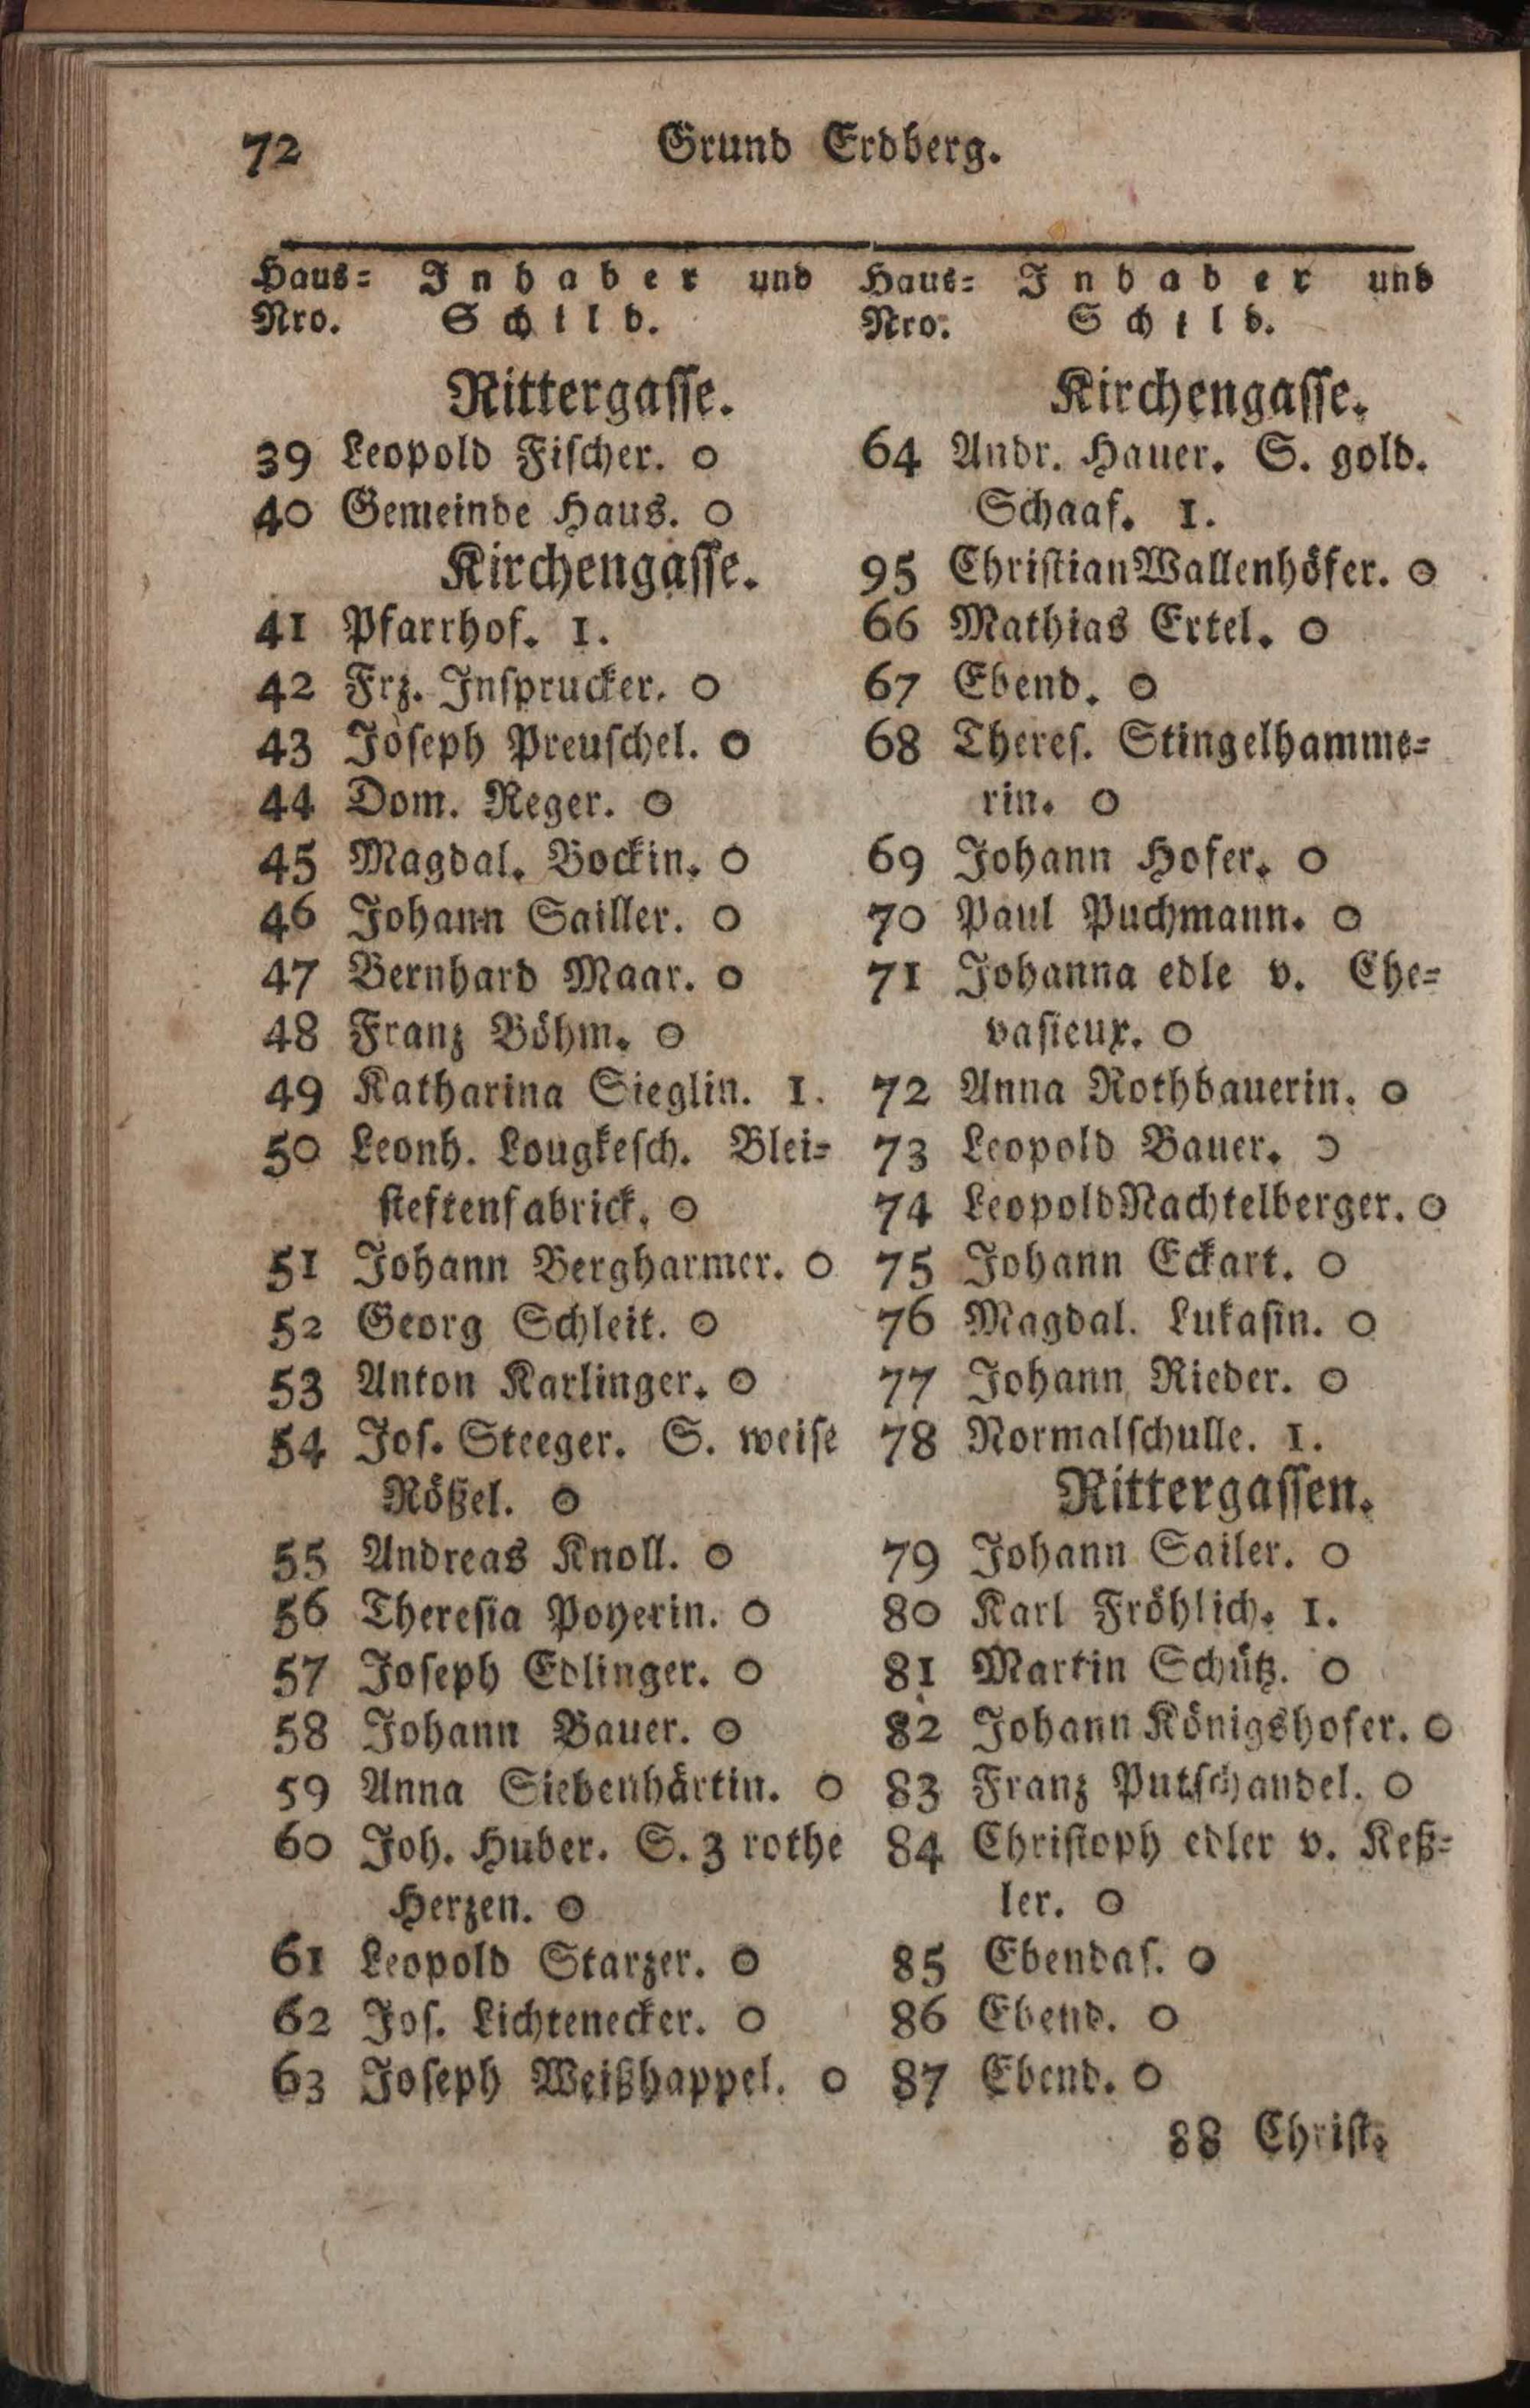 72 Grund Erdberg.
Haus= Inhaber und
Nro. Schild.
Rittergasse.
39 Leopold Fischer. o
40 Gemeinde Haus. o
Kirchengasse.
41 Pfarrhof. 1.
42 Frz. Insprucker. o
43 Joseph Preuschel. o
44 Dom. Reger. o
45 Magdal. Bockin. o
46 Johann Sailler. o
47 Bernhard Maar. o
48 Franz Böhm. o
49 Katharina Sieglin. 1.
50 Leonh. Lougkesch. Blei=
steftenfabrick. o
51 Johann Bergharmer. o
52 Georg Schleit. o
53 Anton Karlinger. o
54 Jos. Steeger. S. weise
Rößel. o
55 Andreas Knoll. o
56 Theresia Poyerin. o
57 Joseph Edlinger. o
58 Johann Bauer. o
59 Anna Siebenhärtin. o
60 Joh. Huber. S. 3 rothe
Herzen. o
61 Leopold Starzer. o
62 Jos. Lichtenecker. o
63 Joseph Weißhappel. o
Haus= Inhaber und
Nro. Schild.
Kirchengasse.
64 Andr. Hauer. S. gold.
Schaaf. 1.
95 Christian Wallenhöfer. o
66 Mathias Ertel. o
67 Ebend. o
68 Theres. Stingelhamme=
rin. o
69 Johann Hofer. o
70 Paul Puchmann. o
71 Johanna edle v. Che=
vasieux. o
72 Anna Rothbauerin. o
73 Leopold Bauer. o
74 Leopold Nachtelberger. o
75 Johann Eckart. o
76 Magdal. Lukasin. o
77 Johann Rieder. o
78 Normalschulle. 1.
Rittergassen.
79 Johann Sailer. o
80 Karl Fröhlich. 1.
81 Martin Schütz. o
82 Johann Königshofer. o
83 Franz Putschandel. o
84 Christoph edler v. Keß=
ler. o
85 Ebendas. o
86 Ebend. o
87 Ebend. o
88 Christ.